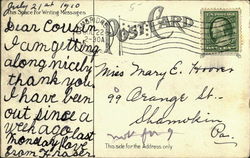 July 21st 1910
This Space for Writing Messages
POST CARD
Dear Cousin
I am getting
along nicely
thank you.
I have been
out since a
week ago last
Monday. Love
from Fraser
Miss Mary E. Hoover
99 Orange St.
Shamokin
Pa.
This side for the Address only